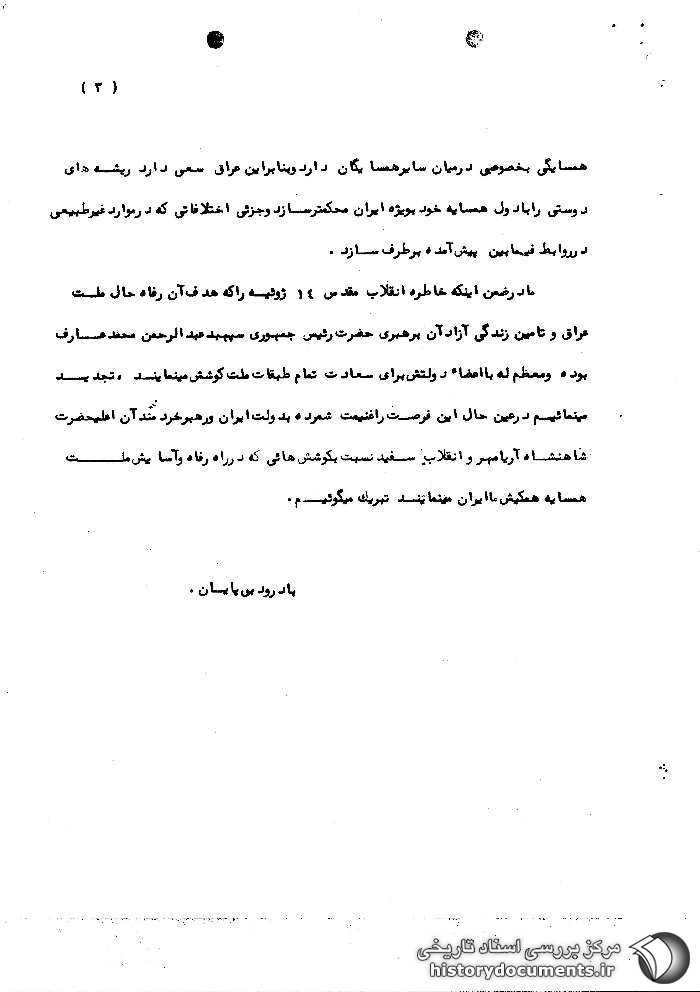 ( ۳ )
همسایگی بخصوصی درمیان سایرهمسایگان دارد وبنابراین عراق سعی دارد ریشه های
دوستی رابادول همسایه خود بویژه ایران محکمترسازد وجزئی اختلافاتی که درموارد غیرطبیعی
درروابط فیمابین پیش‌آمده برطرف سازد .
مادرضمن اینکه خاطره انقلاب مقدس ۱۴ ژوئیه راکه هدف‌آن رفاه حال ملت
عراق و تامین زندگی آزادآن برهبری حضرت رئیس جمهوری سپهبدعبدالرحمن محمدعارف
بوده ومعظم له بااعضاء دولتش‌برای سعادت تمام طبقات ملت‌کوشش‌مینمایند ، تجدید
مینمائیم درعین حال این فرصت راغنیمت شمرده بدولت‌ایران ورهبرخردمند‌آن اعلیحضرت
شاهنشاه آریامهر و انقلاب سفید نسبت بکوشش هائی که درراه رفاه وآسایش‌ملت
همسایه همکیش ماایران مینمایند تبریک میگوئیم .
بادرود بی پایان .
مرکز بررسی اسناد تاریخی
historydocuments.ir